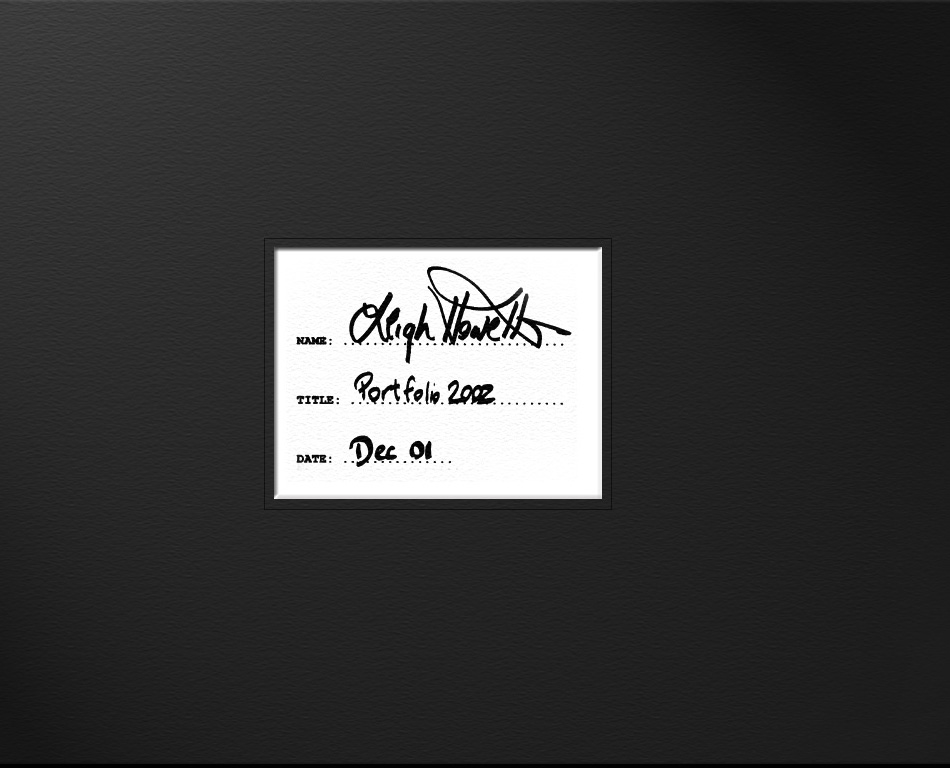 NAME: Leigh Howells
TITLE: Portfolio 2002
DATE: Dec 01